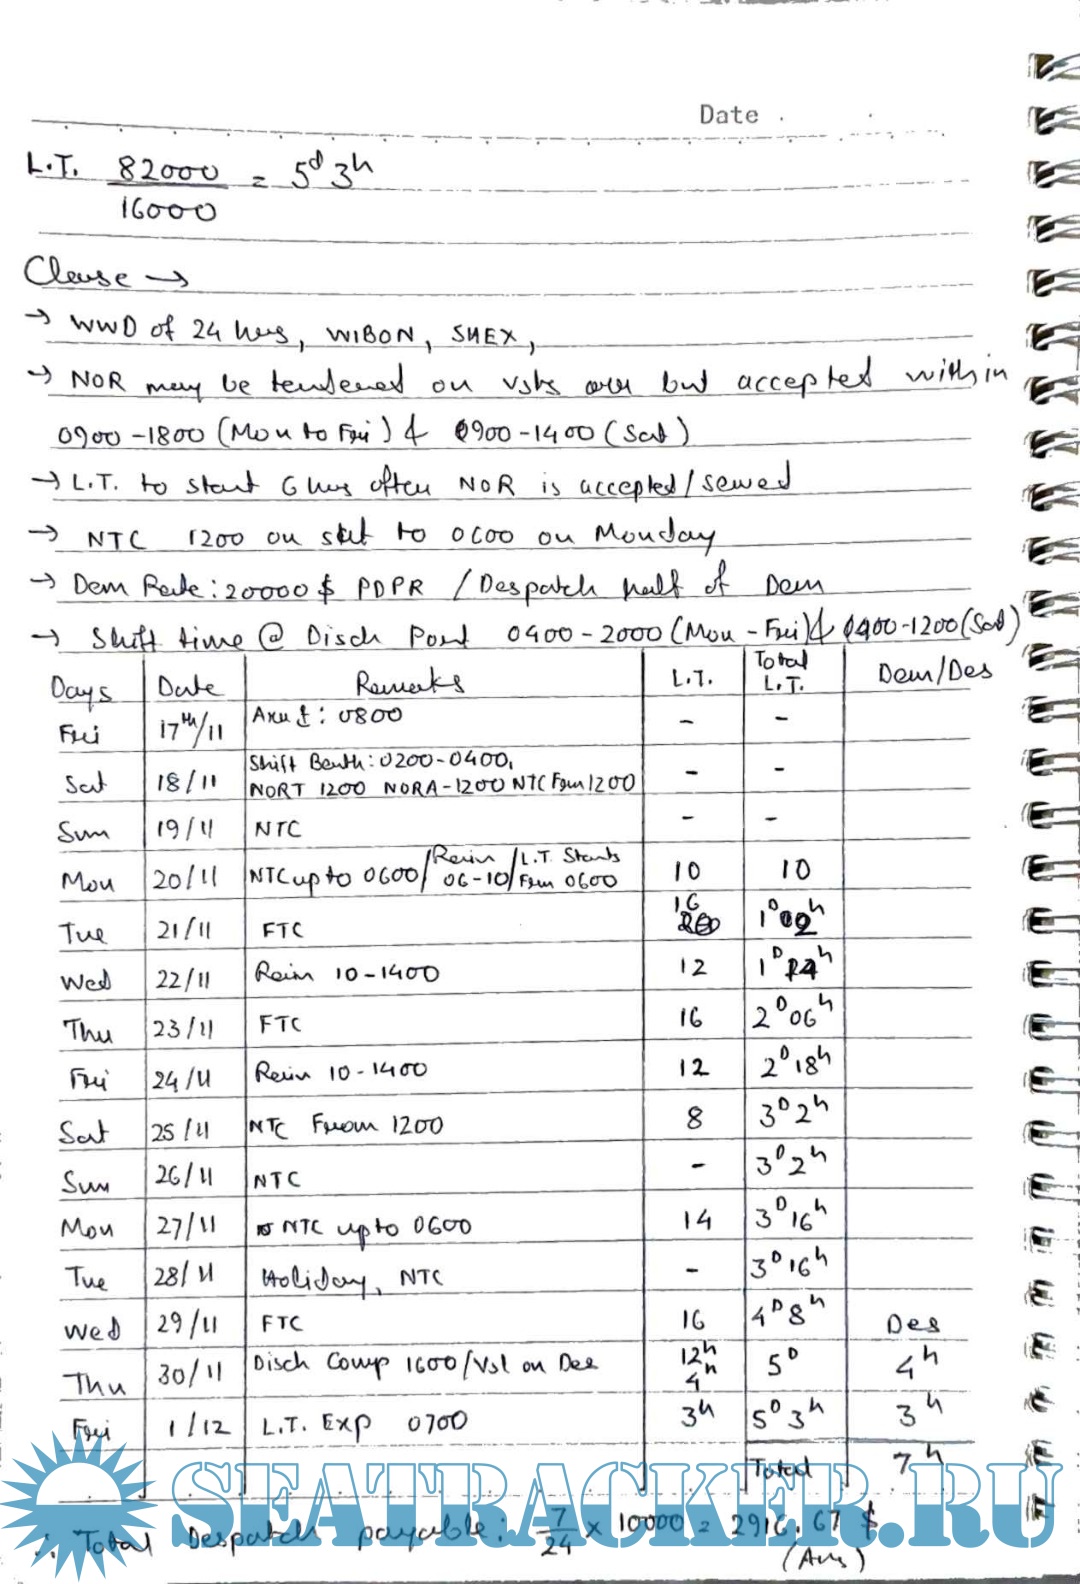 Date
L.T. 82000 = 5d 3h
16000
Clause →
→ WWD of 24 hrs, WIBON, SHEX,
→ NOR may be tendered on vsls arr but accepted within
0900-1800 (Mon to Fri) & 0900-1400 (Sat)
→ L.T. to start 6 hrs after NOR is accepted/served
→ NTC 1200 on sat to 0600 on Monday
→ Dem Rate: 20000 $ PDPR / Despatch half of Dem
→ Shift time @ Disch Port 0400-2000 (Mon-Fri) & 0400-1200 (Sat)
Days Date Remarks L.T. Total L.T. Dem/Des
Fri 17th/11 Arr t: 0800 - -
Sat 18/11 Shift Berth: 0200-0400, NORT 1200 NORA-1200 NTC From 1200 - -
Sun 19/11 NTC - -
Mon 20/11 NTC upto 0600/Rain 06-10/L.T. Starts From 0600 10 10
Tue 21/11 FTC 16 1D 02h
Wed 22/11 Rain 10-1400 12 1D 14h
Thu 23/11 FTC 16 2D 06h
Fri 24/11 Rain 10-1400 12 2D 18h
Sat 25/11 NTC From 1200 8 3D 2h
Sun 26/11 NTC - 3D 2h
Mon 27/11 NTC upto 0600 14 3D 16h
Tue 28/11 Holiday, NTC - 3D 16h
Wed 29/11 FTC 16 4D 8h Des
Thu 30/11 Disch Comp 1600/Vsl on Des 12h 4h 5D 4h
Fri 1/12 L.T. Exp 0700 3h 5D 3h 3h
Total 7h
∴ Total Despatch payable: 7/24 x 10000 = 2916.67 $
(Ans)
SEATRACKER.RU